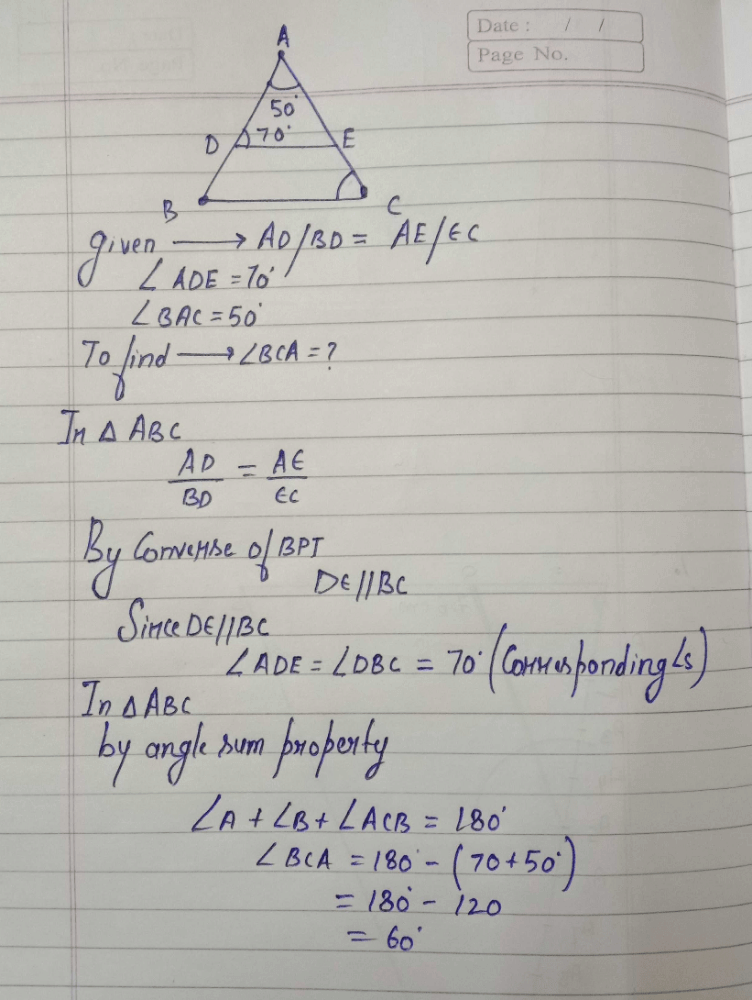 Date : / /
Page No.
A
50°
D 70° E
B C
given → AD/BD = AE/EC
∠ADE = 70°
∠BAC = 50°
To find → ∠BCA = ?
In △ ABC
AD/BD = AE/EC
By Converse of BPT
DE||BC
Since DE||BC
∠ADE = ∠DBC = 70° (Corresponding ∠s)
In △ABC
by angle sum property
∠A + ∠B + ∠ACB = 180°
∠BCA = 180° - (70+50°)
= 180° - 120
= 60°